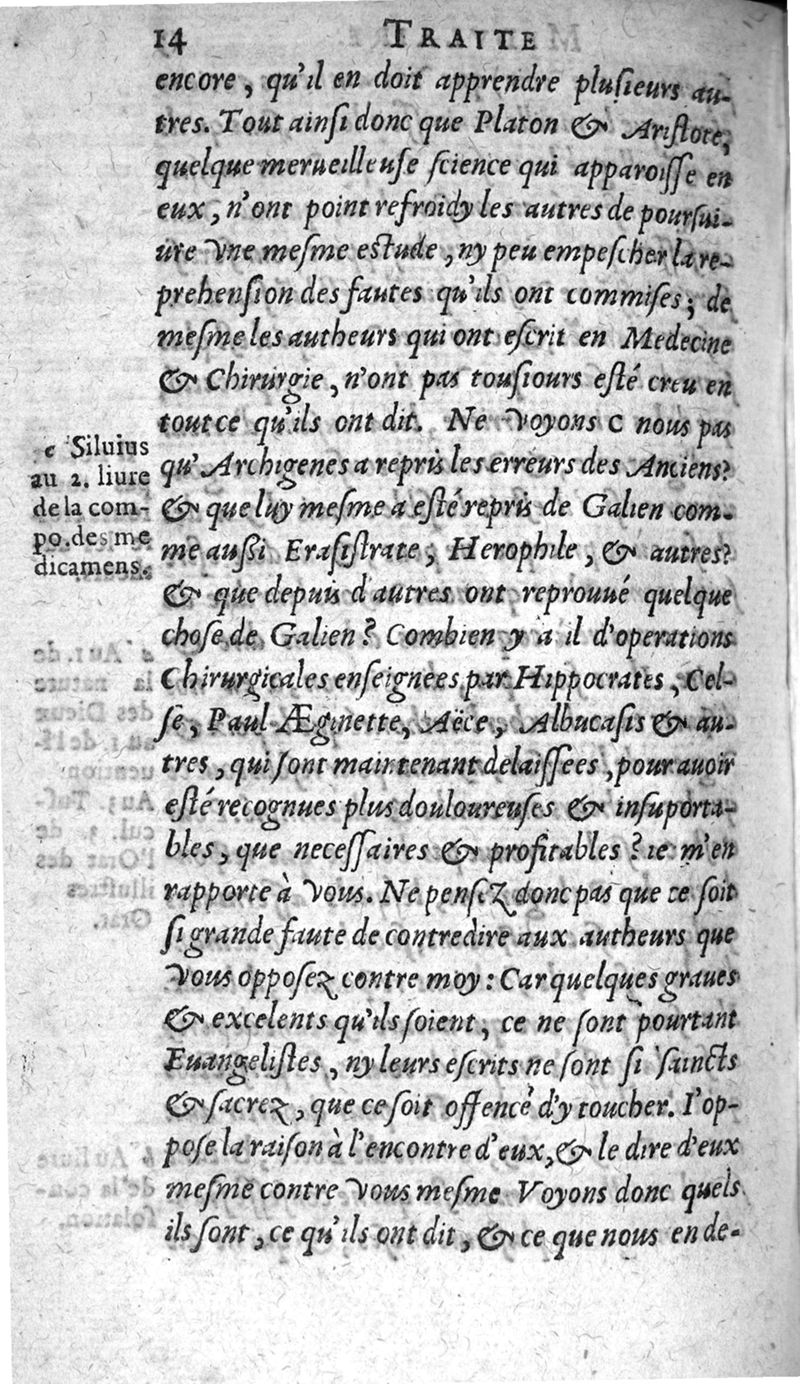 14 TRAITE
encore, qu'il en doit apprendre plusieurs au-
tres. Tout ainsi donc que Platon & Aristote,
quelque merueilleuse science qui apparoisse en
eux, n'ont point refroidy les autres de poursui-
ure vne mesme estude, ny peu empescher la re-
prehension des fautes qu'ils ont commises; de
mesme les autheurs qui ont escrit en Medecine
& Chirurgie, n'ont pas tousiours esté creu en
tout ce qu'ils ont dit. Ne voyons c nous pas
qu'Archigenes a repris les erreurs des Anciens?
& que luy mesme a esté repris de Galien com-
me aussi Erasistrate, Herophile, & autres?
& que depuis d'autres ont reprouué quelque
chose de Galien? Combien y a il d'operations
Chirurgicales enseignees par Hippocrates, Cel-
se, Paul Æginette, Aëce, Albucasis & au-
tres, qui sont maintenant delaissees, pour auoir
esté recognues plus douloureuses & insuporta-
bles, que necessaires & profitables? ie m'en
rapporte à vous. Ne pensez donc pas que ce soit
si grande faute de contredire aux autheurs que
vous opposez contre moy: Car quelques graues
& excelents qu'ils soient, ce ne sont pourtant
Euangelistes, ny leurs escrits ne sont si saincts
& sacrez, que ce soit offence d'y toucher. I'op-
pose la raison à l'encontre d'eux, & le dire d'eux
mesme contre vous mesme Voyons donc quels
ils sont, ce qu'ils ont dit, & ce que nous en de-
c Siluius
au 2. liure
de la com-
po. des me
dicamens.